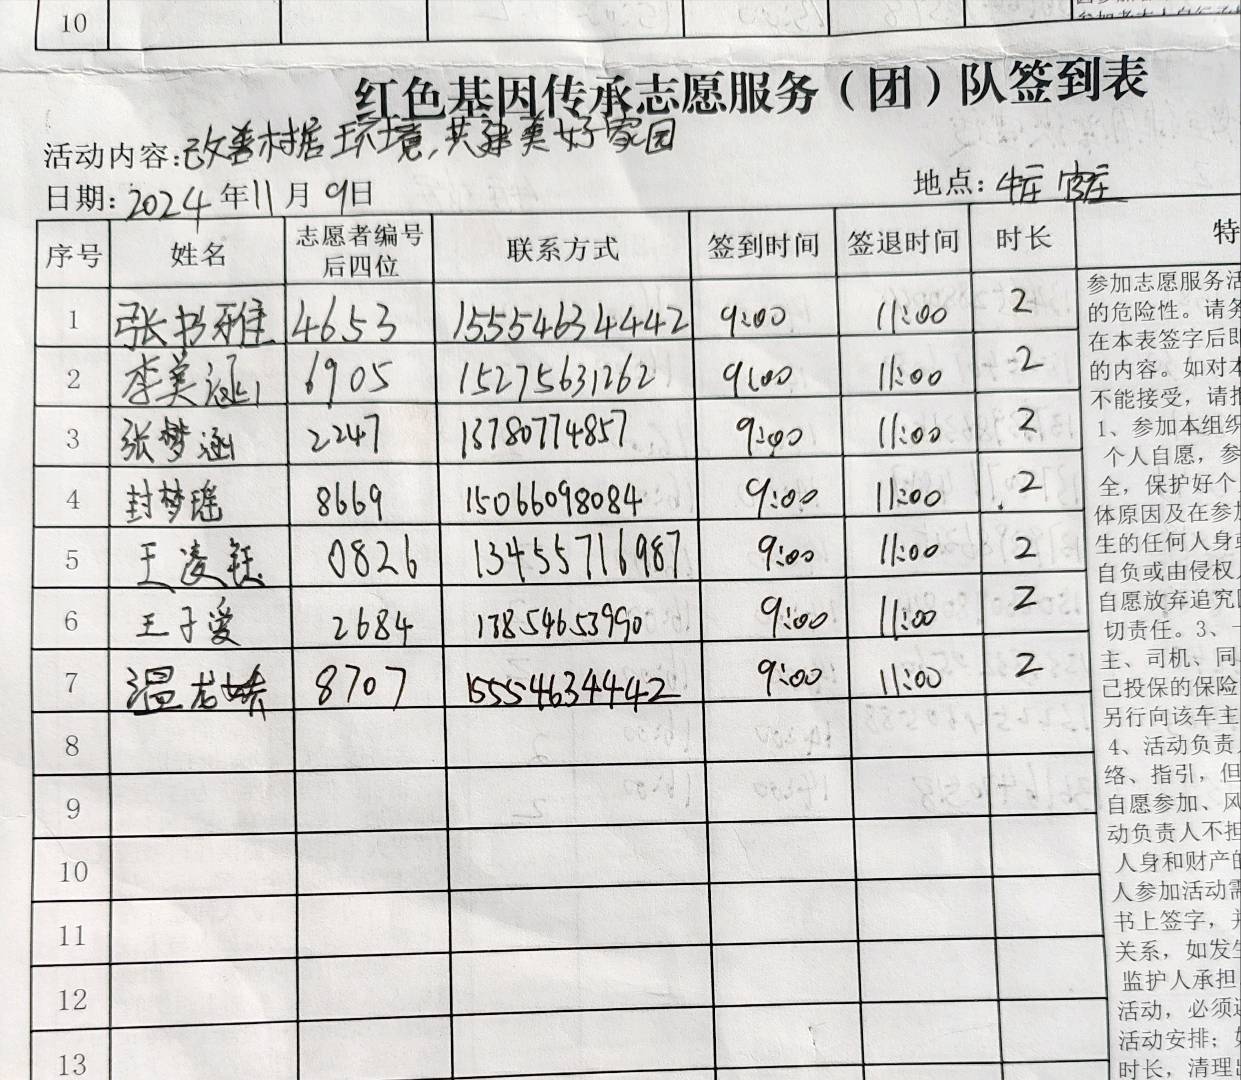 10
红色基因传承志愿服务（团）队签到表
活动内容:改善村居环境,共建美好家园
日期: 2024年11月9日 地点:牛庄 官庄
序号 姓名 志愿者编号后四位 联系方式 签到时间 签退时间 时长 特
1 张书雅 4653 15554634442 9:00 11:00 2
2 李美涵 6905 15275631262 9:00 11:00 2
3 张梦涵 2247 13780774857 9:00 11:00 2
4 封梦瑶 8669 15066098084 9:00 11:00 2
5 王凌钰 0826 13455716987 9:00 11:00 2
6 王子爱 2684 13854653990 9:00 11:00 2
7 温龙娇 8707 15554634442 9:00 11:00 2
8
9
10
11
12
13
参加志愿服务活
的危险性。请务
在本表签字后即
的内容。如对本
不能接受，请拒
1、参加本组织
个人自愿，参
全，保护好个
体原因及在参加
生的任何人身或
自负或由侵权
自愿放弃追究
切责任。3、
主、司机、同
己投保的保险
另行向该车主
4、活动负责
络、指引，但
自愿参加、风
动负责人不担
人身和财产的
人参加活动需
书上签字，并
关系，如发生
监护人承担
活动，必须遵
活动安排；如
时长，清理出